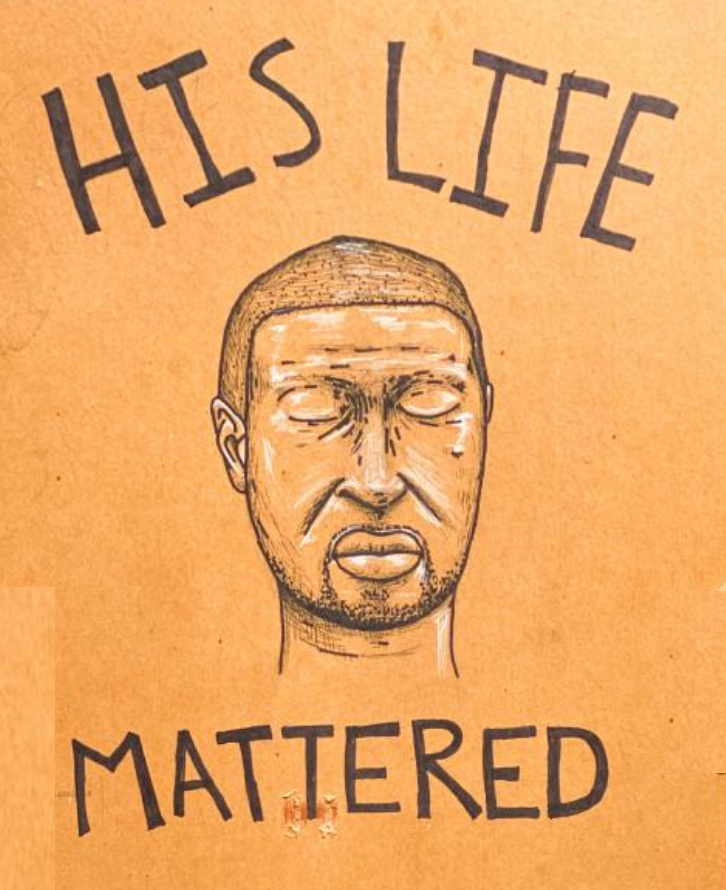 HIS LIFE
MATTERED